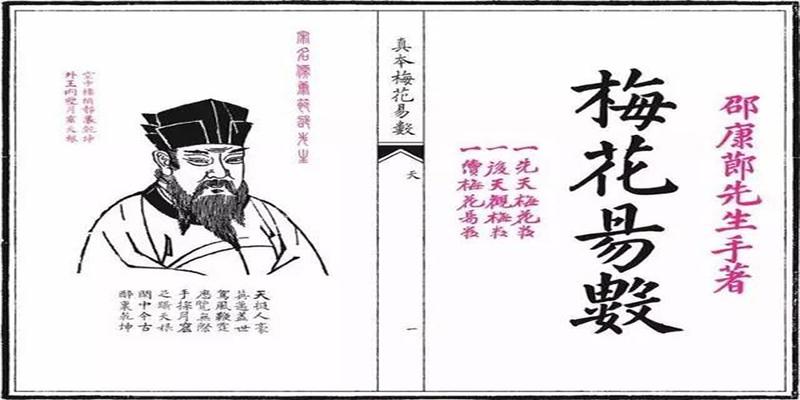 邵康節先生手著
梅花易數
一先天梅花數
一後天觀梅數
一續梅花易數
真本梅花易數
天
一
宋名儒康節邵先生
空中樓閣靜裏乾坤
外王內聖月窟天根
天挺人豪
英邁蓋世
駕風鞭霆
歷覽無際
手探月窟
足躡天根
閒中今古
醉裏乾坤